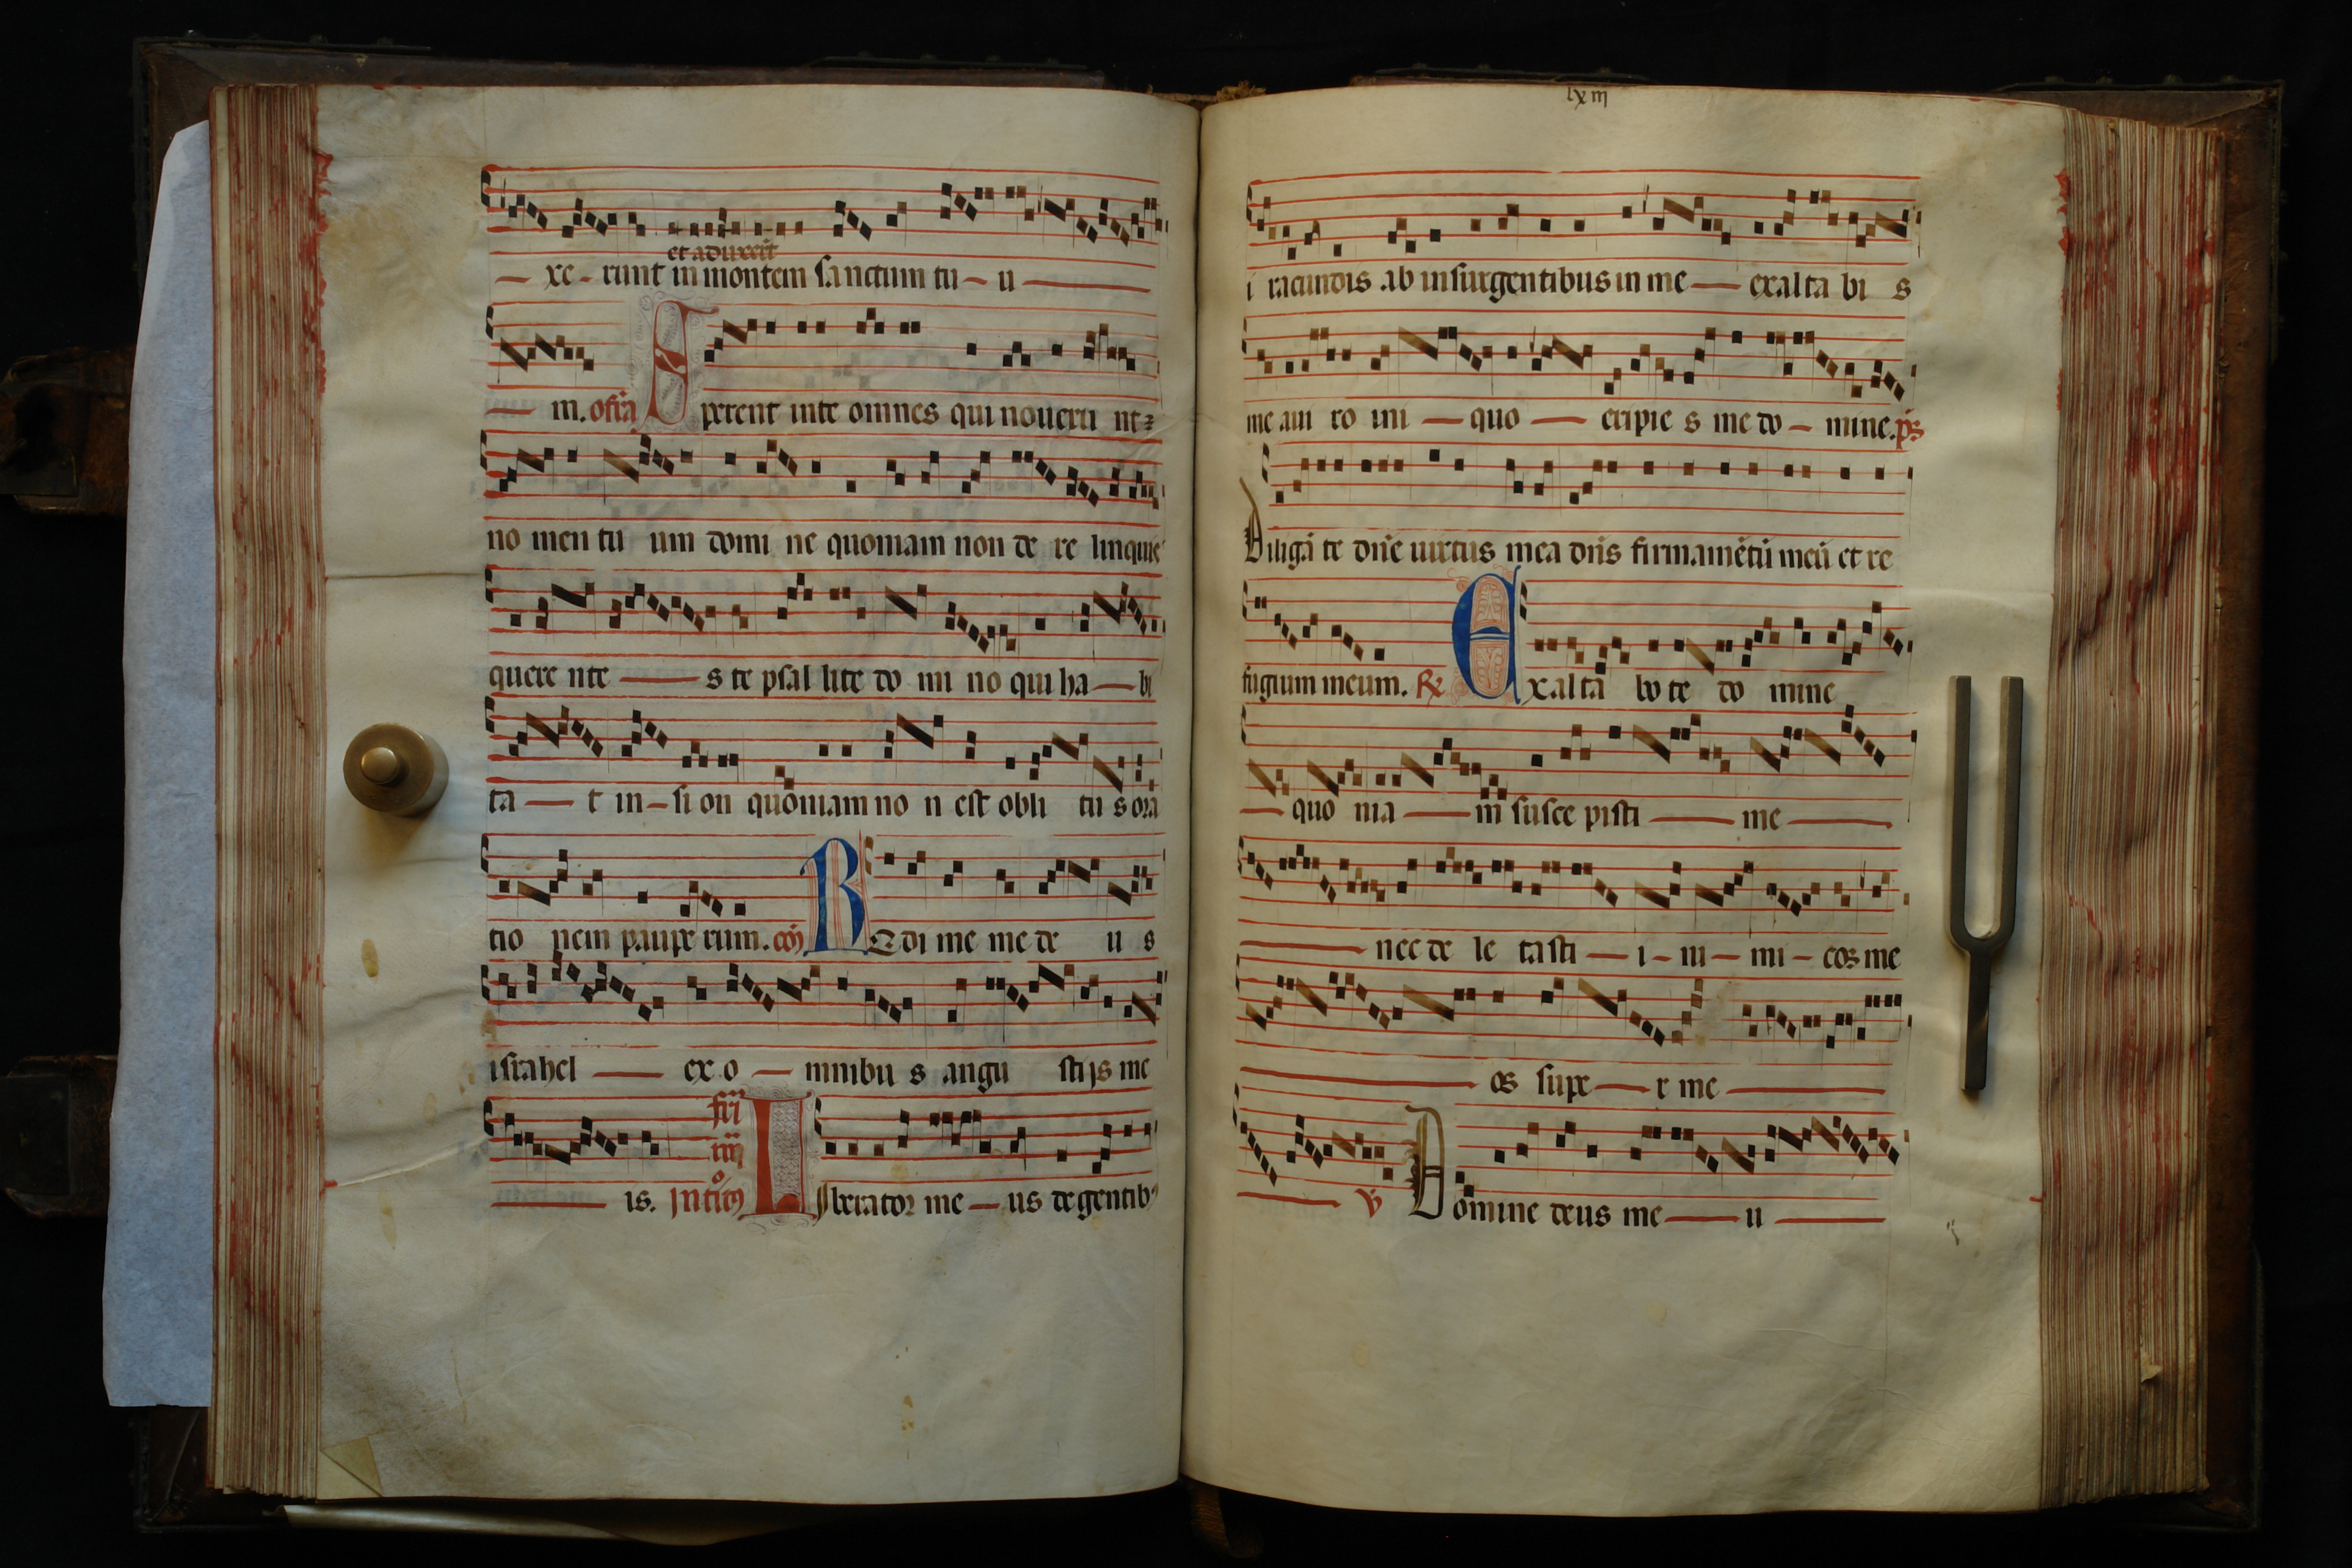 et aduxerūt
— xe - runt in montem sanctum tu - u —
— m. ofrā Sperent inte omnes qui noueru nt
no men tu um domi ne quoniam non de re linquis
quere nte — s te psal lite do mi no qui ha — bi
ta — t in - si on quoniam no n est obli tus ora
tio nem paupe rum. coī Redi me me de u s
israhel — ex o — mnibu s angu stijs me
— is. fr̄i iiij Introitꝰ Liberator me — us de gentibꝰ
lxiii
i racundis ab insurgentibus in me — exalta bi s
me a ui ro ini — quo — eripie s me do - mine. ps
Diligā te dn̄e uirtus mea dn̄s firmamētū meū et re
fugium meum. ℞ Exalta bo te do mine
— quo nia — m susce pisti — me —
— nec de le ta sti — i - ni - mi - cos me
— os supe — r me —
— ℣ Domine deus me — u —